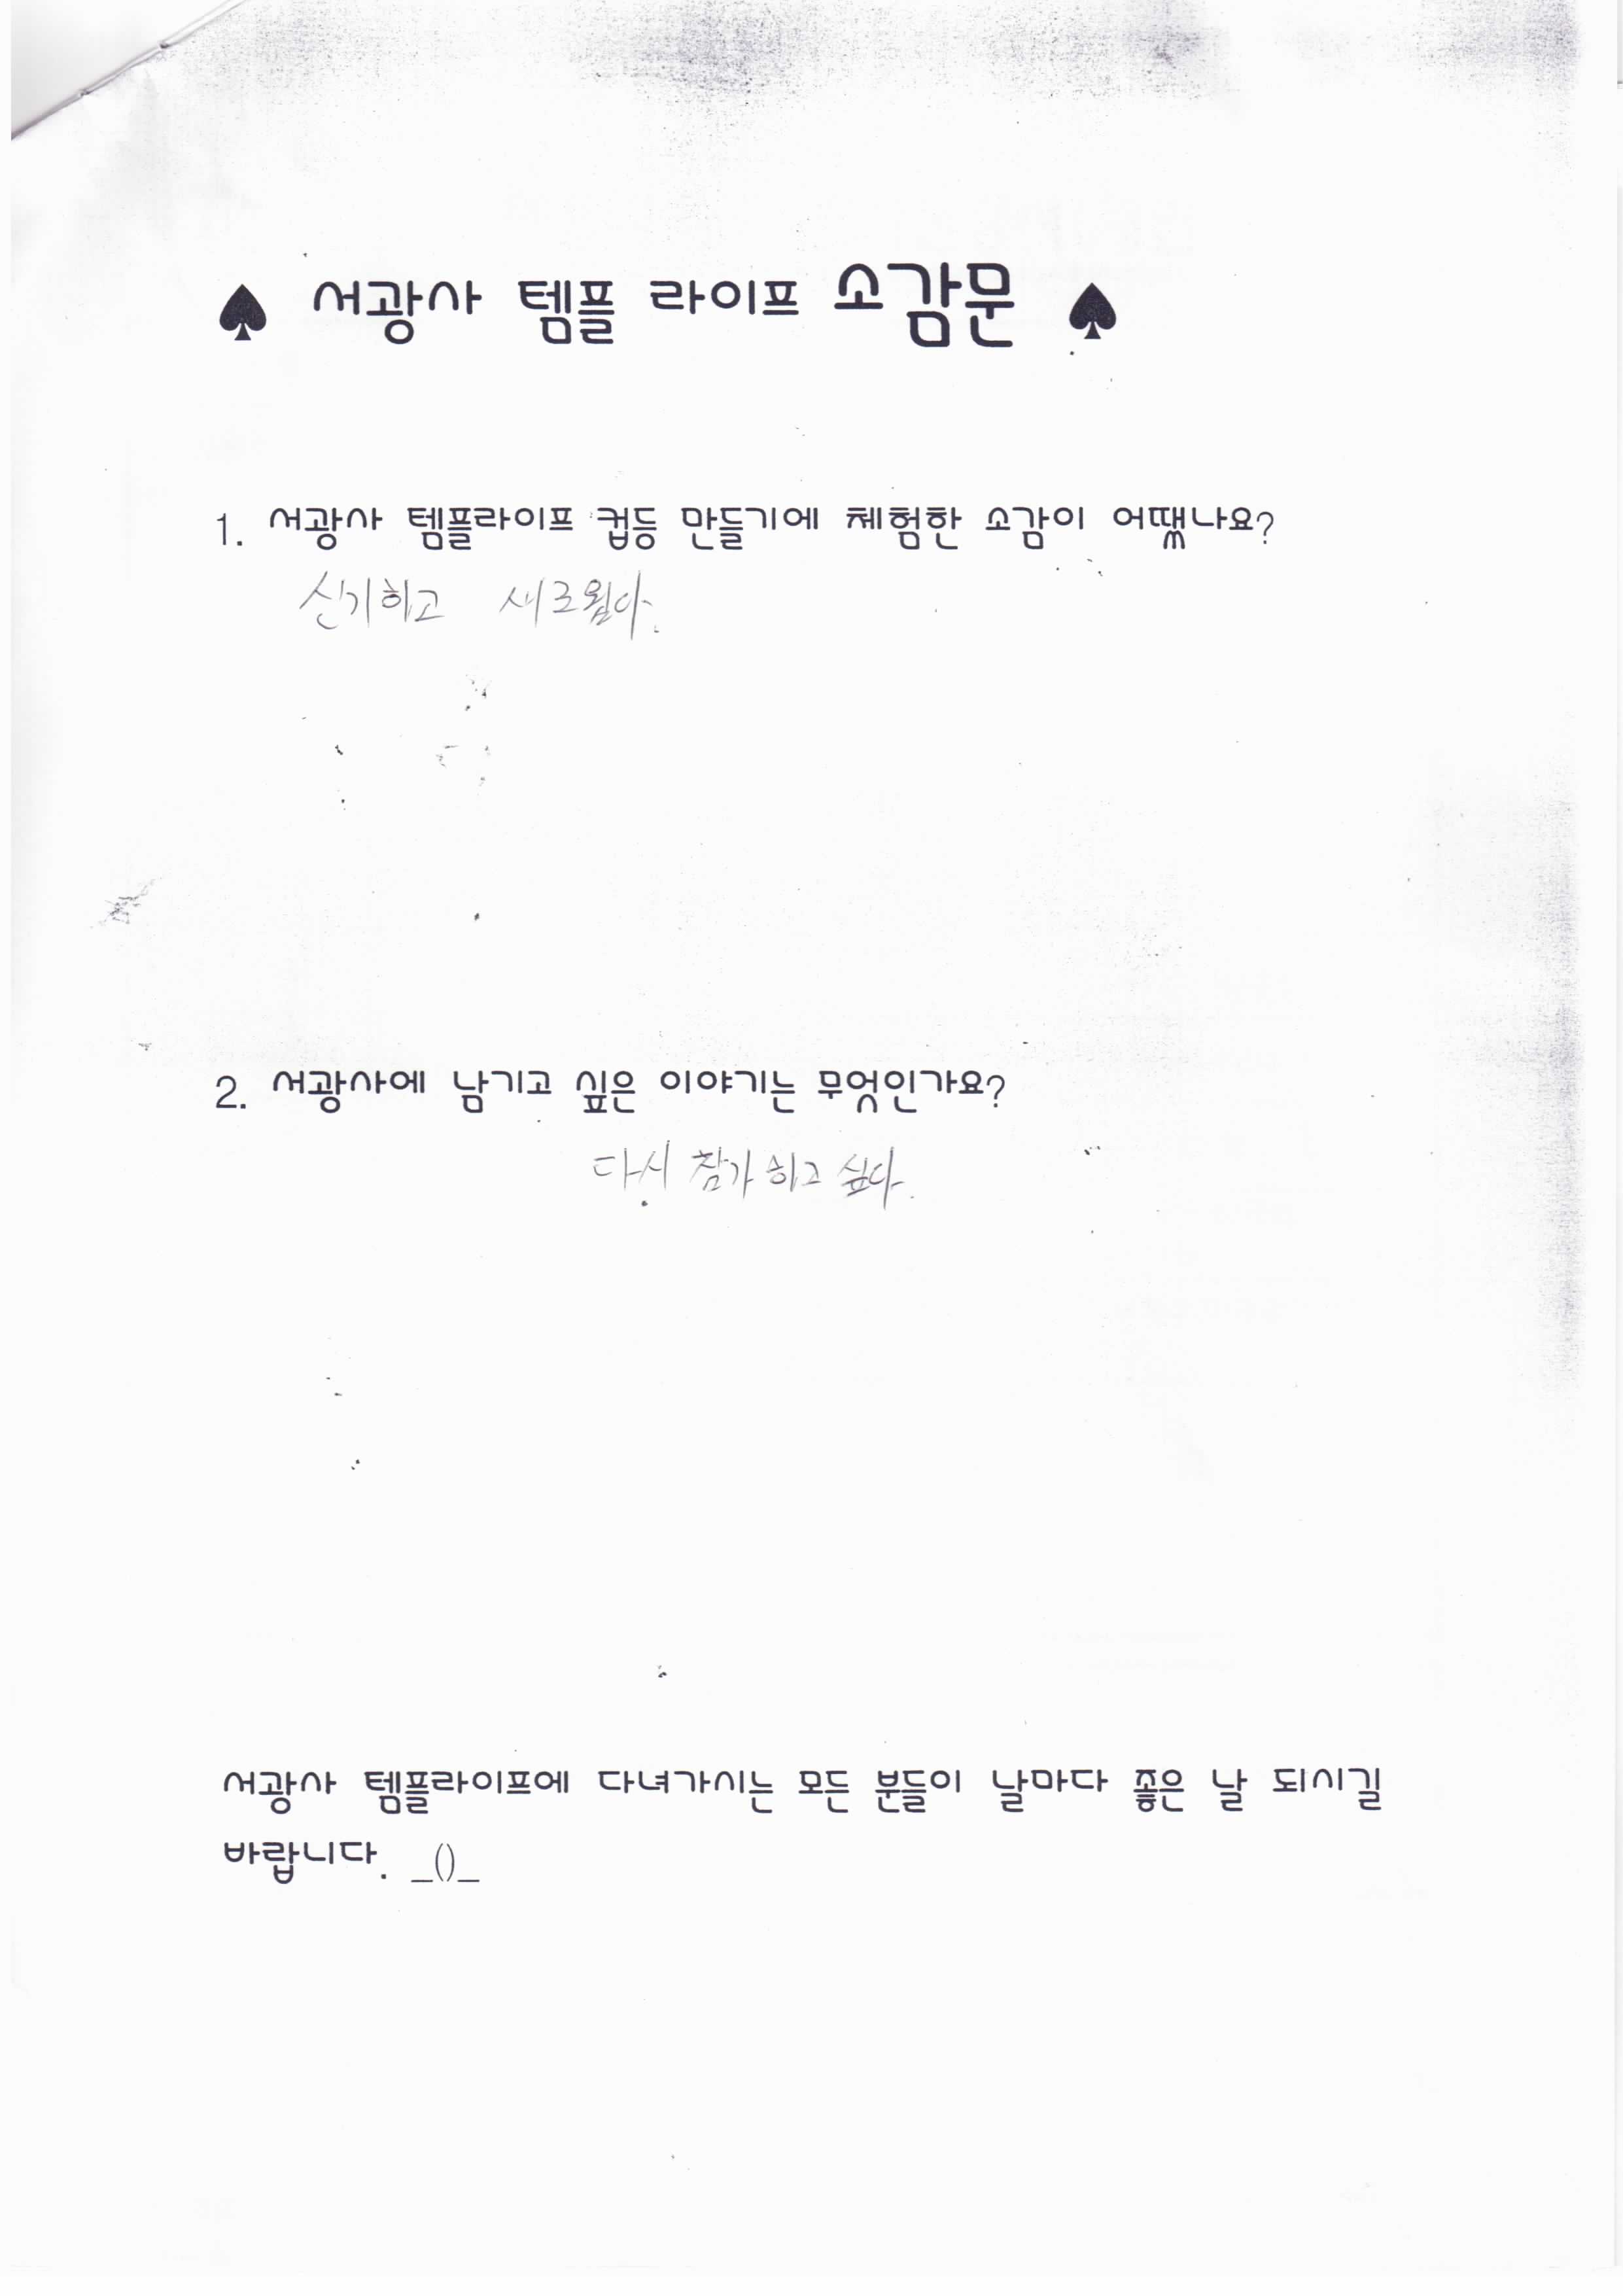 ♠ 서광사 템플 라이프 소감문 ♠
1. 서광사 템플라이프 컵등 만들기에 체험한 소감이 어땠나요?
신기하고 새로웠다.
2. 서광사에 남기고 싶은 이야기는 무엇인가요?
다시 참가하고 싶다.
서광사 템플라이프에 다녀가시는 모든 분들이 날마다 좋은 날 되시길
바랍니다. _()_